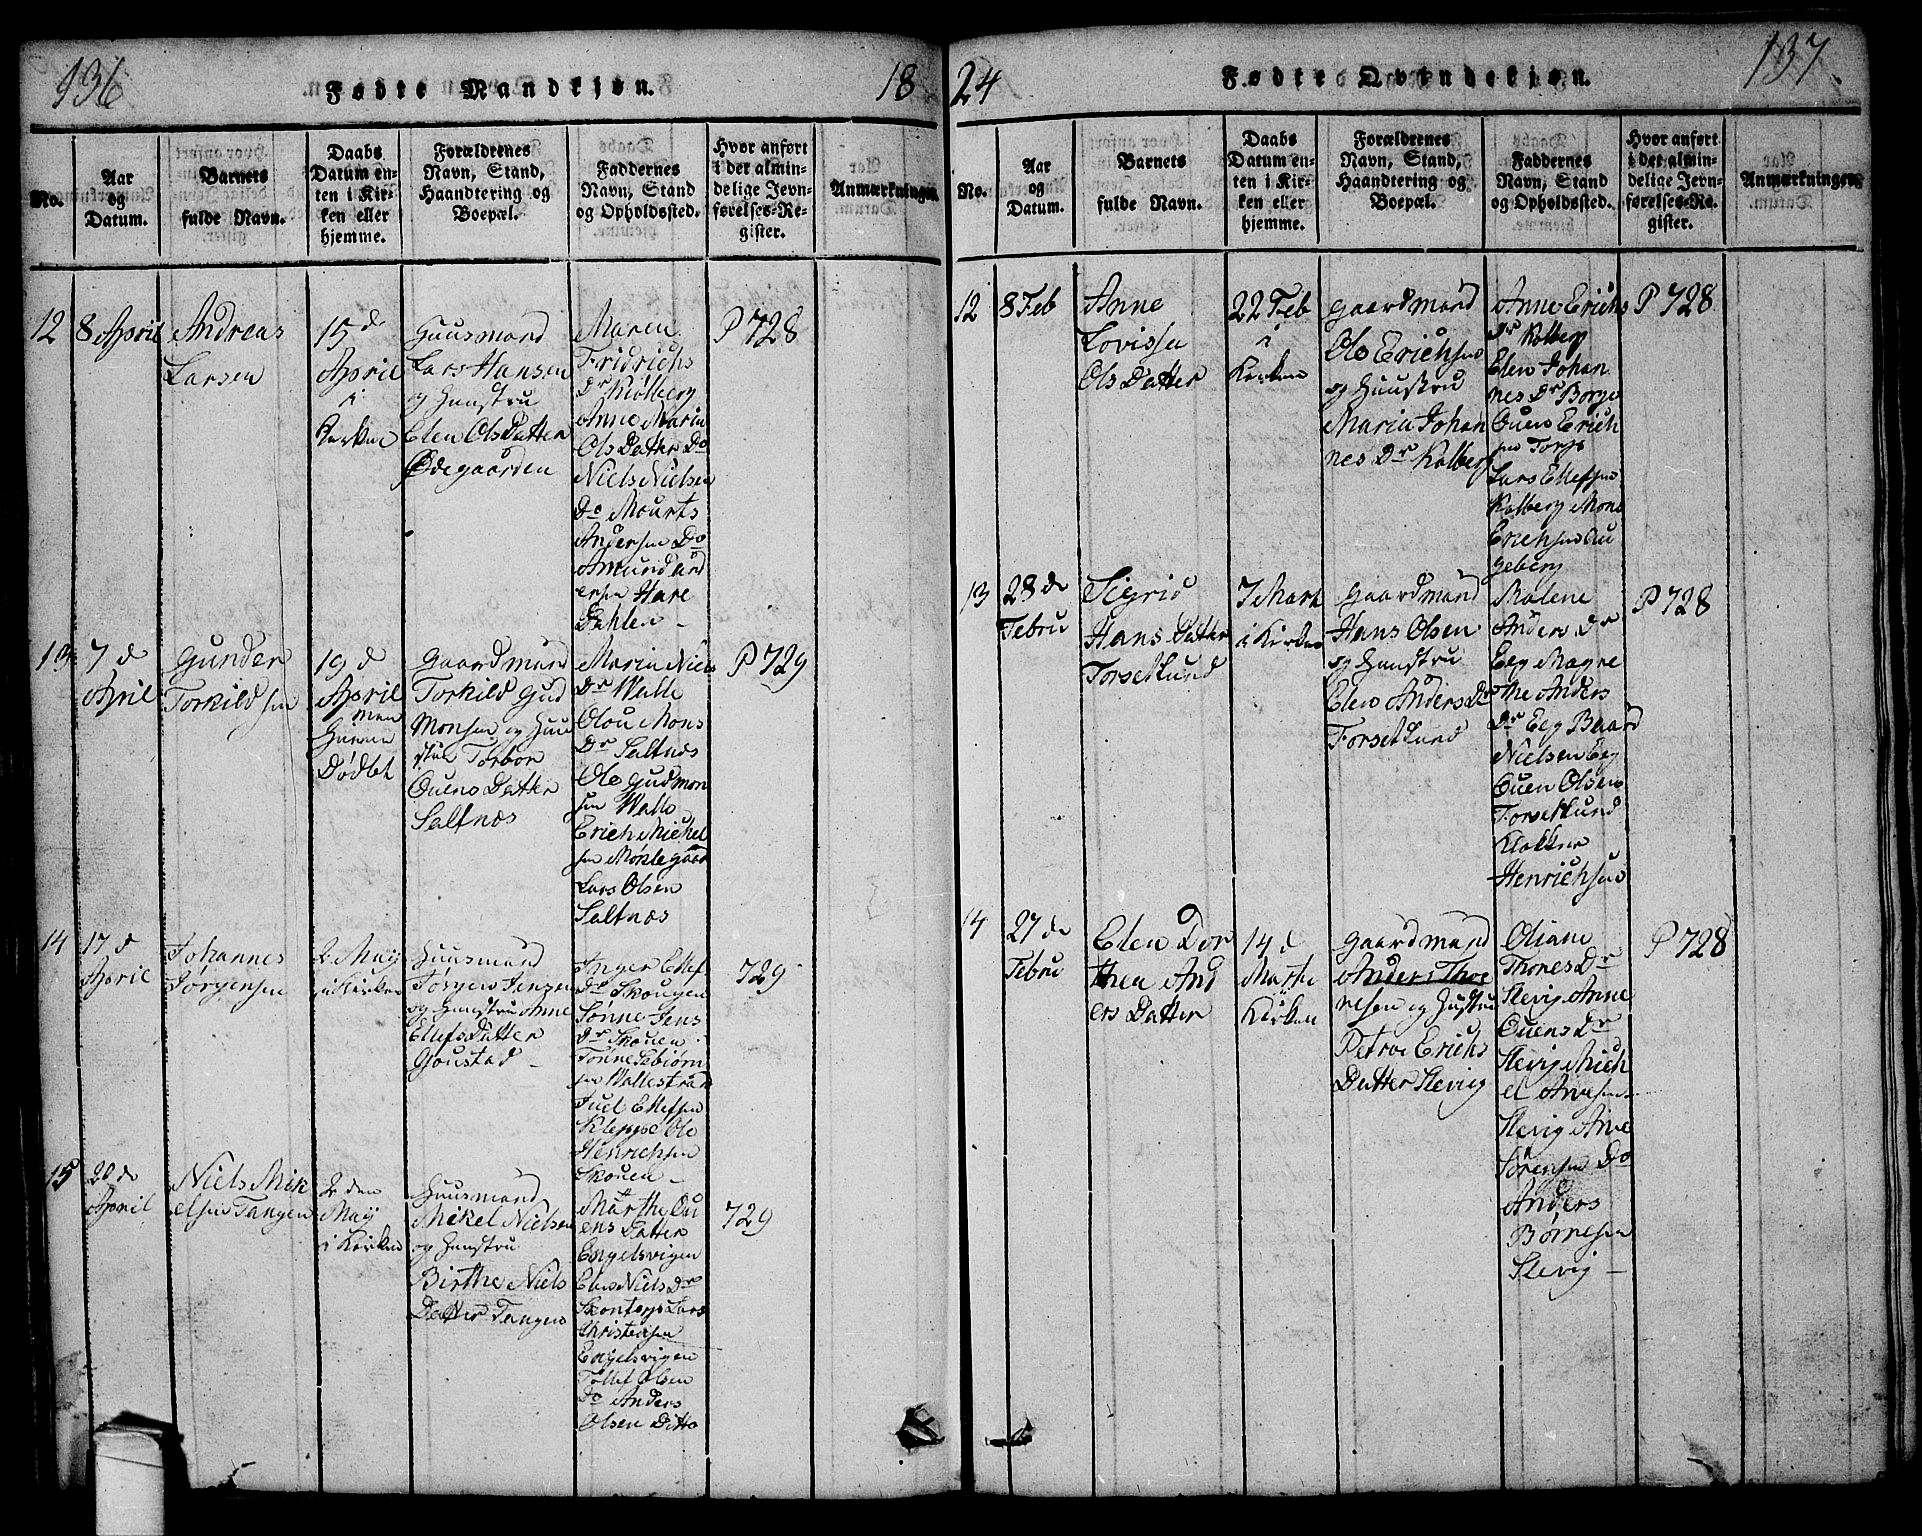 136
Fødte Mandkjøn.
18
No.
Aar
og
Datum.
Barnets
fulde Navn.
Daabs
Datum en-
ten i Kir-
ken eller
hjemme.
Forældrenes
Navn, Stand,
Haandtering og
Boepæl.
Faddernes
Navn, Stand
og Opholdssted.
Hvor anført
i det almin-
delige Jevn-
førelses-Re-
gister.
Anmærkninger.
12
8 April
Andreas
Larsen
15 d
April
i
Kirken
Huusmand
Lars Hansen
og Hunstru
Elen Ols Datter
Ødegaarden
Maren
Fridrichs
Dr Kølberg
Anne Maria
Ols Datter Do
Niels Nielsen
Do Mourts
Andersen Do
Amund And
ersen Hare
Dahlen
P 728
13
7 d
April
Gunder
Torkildsen
19 d
April
Dødbt
Gaardmand
Torkild Gud
Monsen og Huu
stru Torbor
Ouens Datter
Saltnes
Maria Niels
Dr Walle
Olou Mons
Dr Saltnes
Ole Gudmon
sen Walle
Erich Michel
sen
Lars Olsen
Saltnes
P 729
14
17 d
April
Johannes
Jørgensen
2 May
i Kirken
Huusmand
Jørgen Jensen
og Hunstru Anne
Ellefs Datter
Goustad
Inger Ellef
Dr Skougen
Sønne Jens
Dr Skouen
Tønne Sebiørn
sen Wallestrand
Juel Ellefsen
Kleppe Ole
Henrichsen
Skouen
729
15
20 de
April
Niels Mik
elsen Tangen
2 den
May
i Kirken
Huusmand
Mikel Nielsen
og Hunstru
Birthe Niels
Datter Tangen
Marthe Ou
ens Datter
Engelsvigen
Elen Niels Dr
Skontorp Lars
Christensen
Engelsvigen
Tollef Olsen
Do Anders
Olsen Ditto
729
24
Fødte Qvindekjøn.
137
No.
Aar
og
Datum.
Barnets
fulde Navn.
Daabs
Datum en-
ten i Kir-
ken eller
hjemme.
Forældrenes
Navn, Stand,
Haandtering og
Boepæl.
Faddernes
Navn, Stand
og Opholdssted.
Hvor anført
i det almin-
delige Jevn-
førelses-Re-
gister.
Anmærkninger.
12
8 Feb
Anne
Lovissa
Ols Datter
22 Feb
i
Kirken
Gaardmand
Ole Erichsen
og Huustru
Maria Johan
nes Dr Kalberg
Anne Erichs
Dr Kolberg
Elen Johan
nes Dr Borge
Ouen Erich
sen Torp
Lars Ellefsen
Kalberg Mons
Erichsen Au
geberg
P 728
13
28 de
Febru
Sigrid
Hans Datter
Forsetlund
7 Mart
i Kirken
Gaardmand
Hans Olsen
og Hunstru
Elen Anders Dr
Forsetlund
Malene
Anders Dr
Eeg Magre
the Anders
Dr Eeg Baard
Nielsen Eeg
Ouen Olsen
Forsetlund
Klokker
Henrichsen
P 728
14
27 de
Febru
Elen Dor
thea And
ers Datter
14 d
Marts
Kirken
Gaardmand
Anders Tho
nesen og Hustru
Petroe Erichs
Datter Slevig
Oliane
Thones Dr
Slevig Anne
Ouens Dr
Slevig Mich
el Arnesen
Slevig Arne
Sørensen Do
Anders
Børnesen
Slevig
P 728